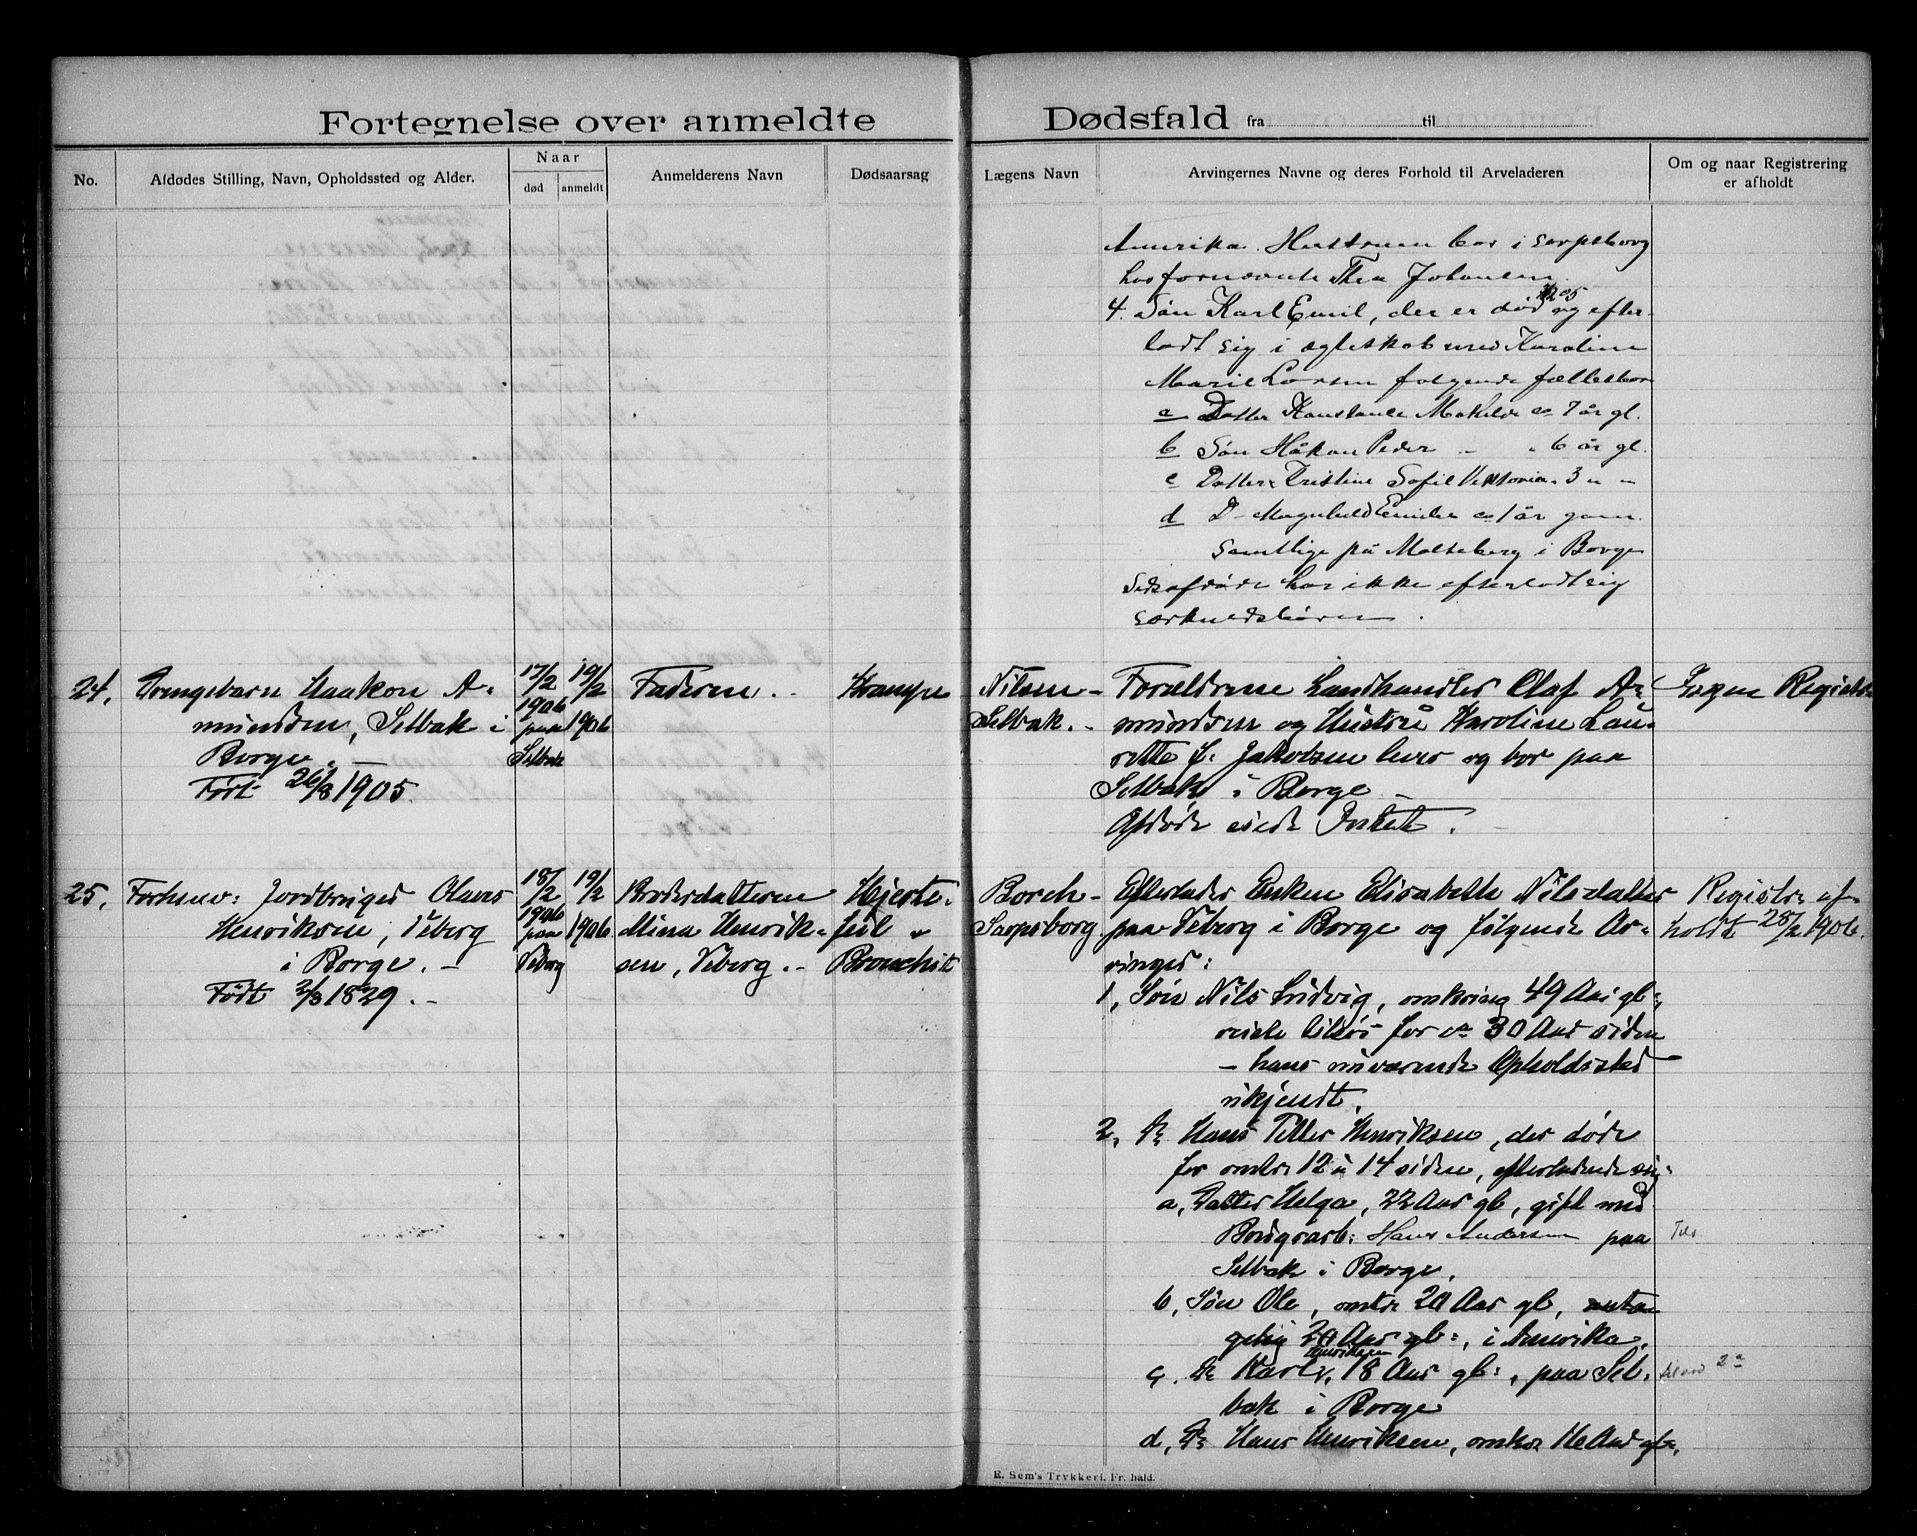 Fortegnelse over anmeldte Dødsfald fra til
No.
Afdødes Stilling, Navn, Opholdssted og Alder.
Naar
død
anmeldt
Anmelderens Navn
Dødsaarsag
Lægens Navn
Arvingernes Navne og deres Forhold til Arveladeren
Om og naar Registrering
er afholdt
Amerika. Hustruen bor i Sarpsborg
hos fornævnte Thea Johansen.
4. Søn Karl Emil, der er død og efter-
ladt sig i ægteskab med Karoline
Marie Larsen følgende fællesbørn
a Datter Konstance Mathilde ca 7 år gl.
b Søn Håkon Peder - " 6 år gl.
c Datter Kristine Sofie Viktoria " 3 " "
d D- Magnhild Emilie ca 1 år gam.
samtlige på Molteberg i Borge
Sidstafdøde har ikke efterladt sig
særkuldsbørn.
24.
Drengebarn Haakon A-
mundsen, Selbak i
Borge. -
Født 26/8 1905.
17/2
1906
paa
Selbak
19/2
1906
Faderen. -
Krampe
Nilsen -
Selbak. -
Forældrene Landhandler Olaf A-
mundsen og Hustru Karoline Lau-
rette f. Jakobsen lever og bor paa
Selbak i Borge -
Afdøde eiede Intet.
Ingen Registr.
25.
Forhenv: Jordbruger Olaves
Henriksen, Veberg
i Borge. -
Født 2/3 1829. -
18/2
1906
paa
Veberg
19/2
1906
Brodersdatteren
Mina Henrik-
sen, Veberg. -
Hjerte-
feil
Bronchit
Borch -
Sarpsborg
Efterlader Enken Elisabeth Nilsdatter
paa Veberg i Borge og følgende Ar-
vinger:
1, Søn Nils Ludvig, omkring 49 Aar gl.,
reiste tilsøs for ca 30 Aar siden
- hans nuværende Opholdssted
ukjendt.
2, Do Hans Petter Henriksen, der døde
for omtr 12 à 14 siden, efterladende sig:
a, Datter Helga, 22 Aar gl, gift med
Bordgrarb: Hans Andersen paa
Selbak i Borge.
b, Søn Ole, omtr 20 Aar gl,
20 Aar gl:, i Amerika.
c, Do Karl Henriksen, 18 Aar gl:, paa Sel-
bak i Borge
d, Do Hans Henriksen, omkr 16 Aar gl:,
Registr: af-
holdt 28/2 1906.
E. Sem's Trykkeri, Fr. hald.